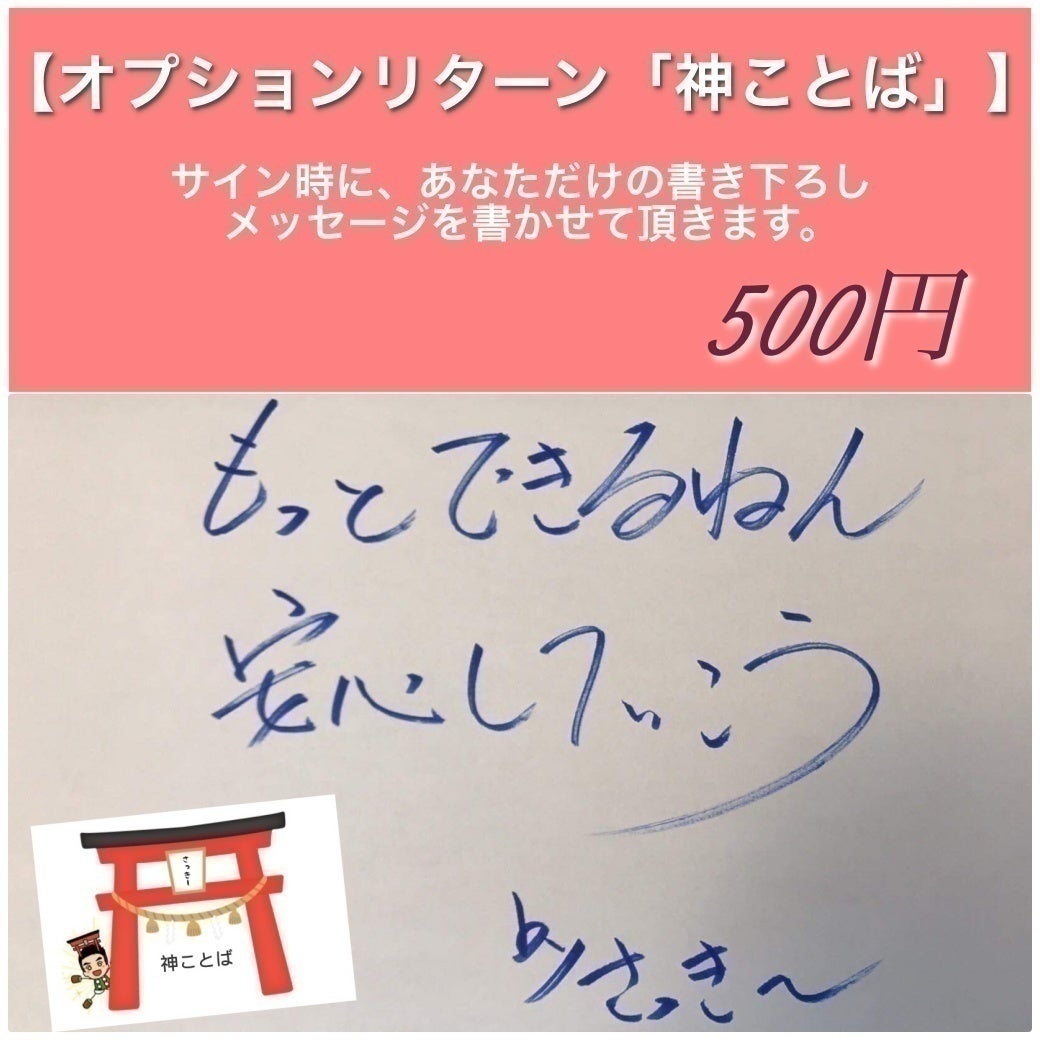 【オプションリターン「神ことば」】
サイン時に、あなただけの書き下ろし
メッセージを書かせて頂きます。
500円
もっとできるねん
安心していこう
byさっき〜
さっきー
神ことば